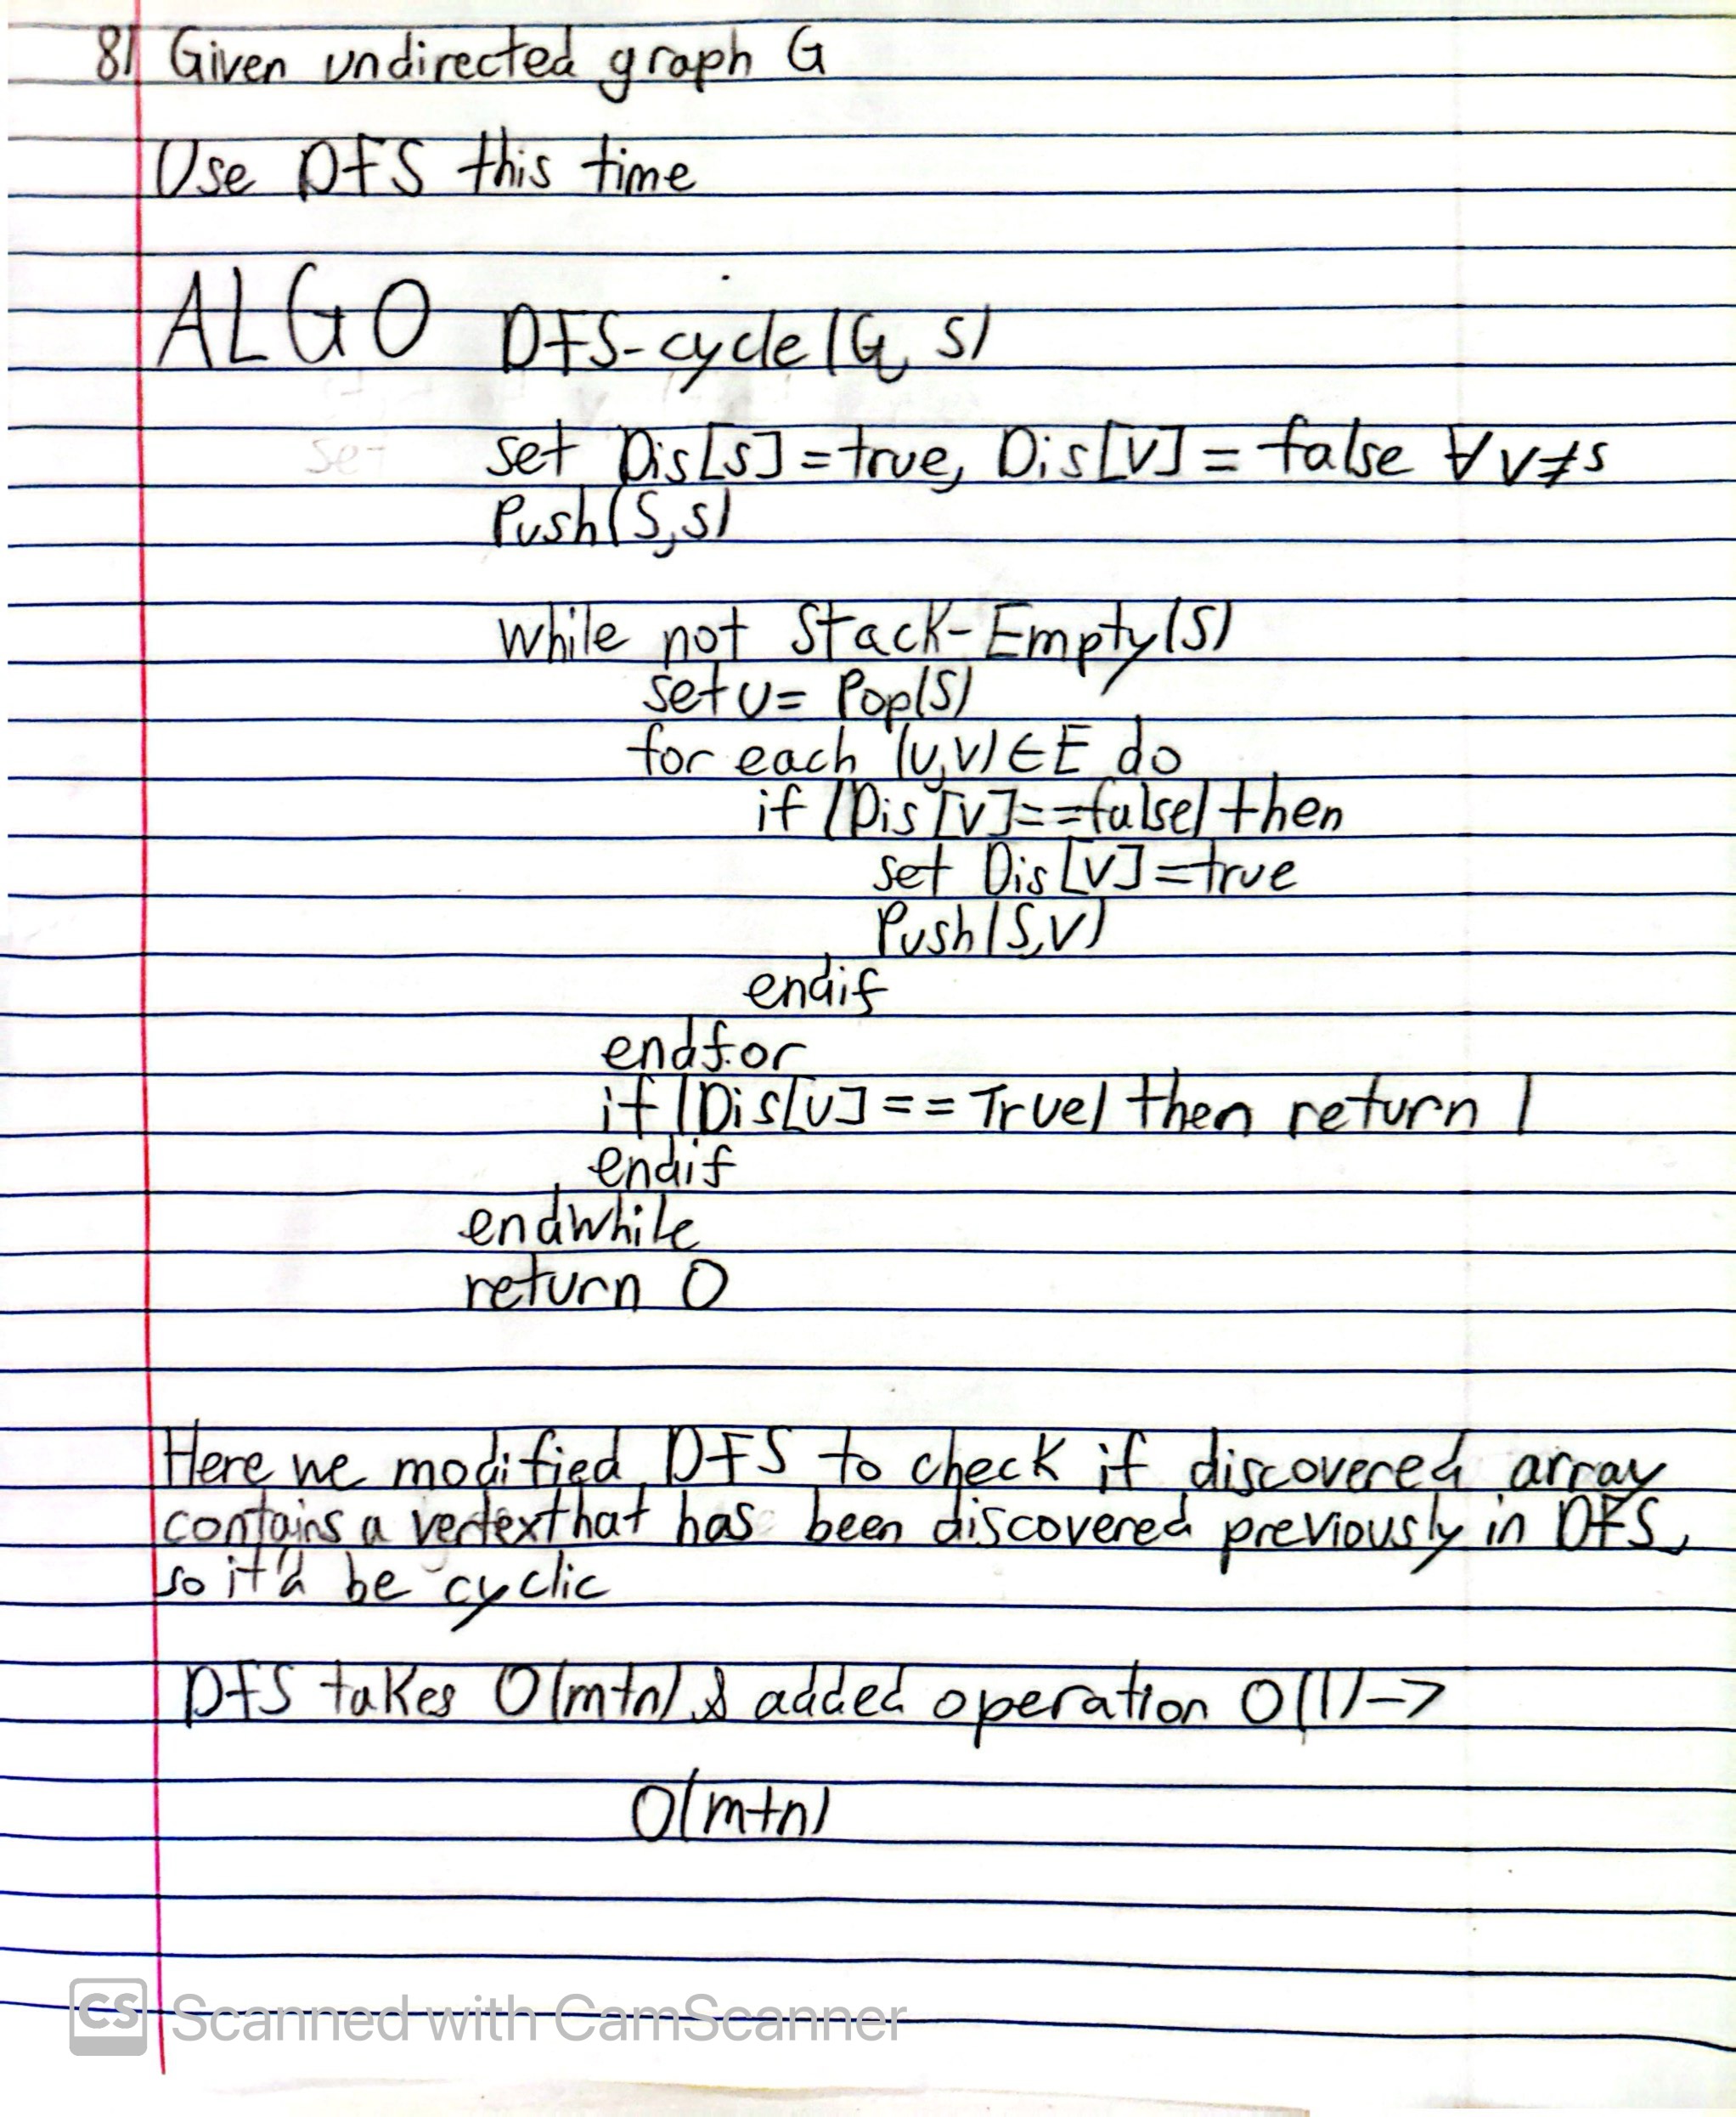 8) Given undirected graph G
Use DFS this time
ALGO DFS-cycle(G, s)
set Dis[s]=true, Dis[v] = false ∀ v≠s
Push(S,s)
while not Stack-Empty(S)
set u= Pop(S)
for each (u,v) ∈ E do
if (Dis[v]==false) then
set Dis[v]=true
Push(S,v)
endif
endfor
if (Dis[u] == True) then return 1
endif
endwhile
return 0
Here we modified DFS to check if discovered array
contains a vertex that has been discovered previously in DFS,
so it'd be cyclic
DFS takes O(m+n) & added operation O(1) ->
O(m+n)
CS Scanned with CamScanner